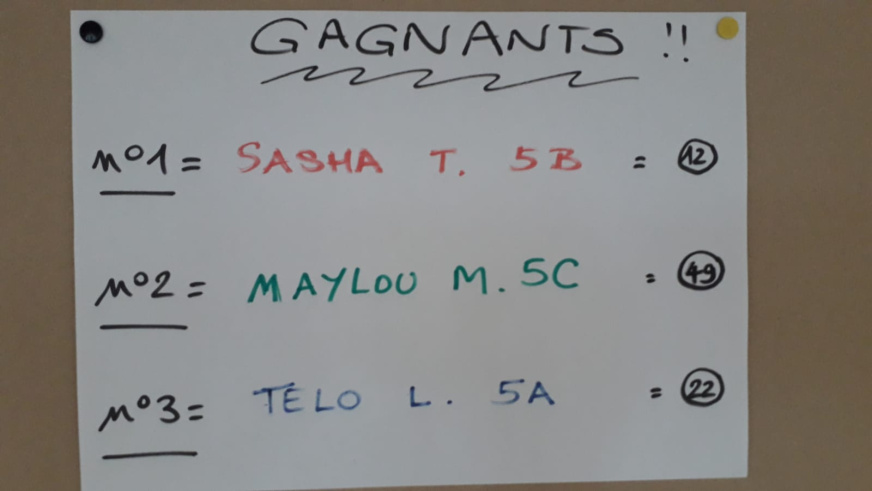 GAGNANTS !!
n°1 = SASHA T. 5B = 12
n°2 = MAYLOU M. 5C = 49
n°3 = TÉLO L. 5A = 22